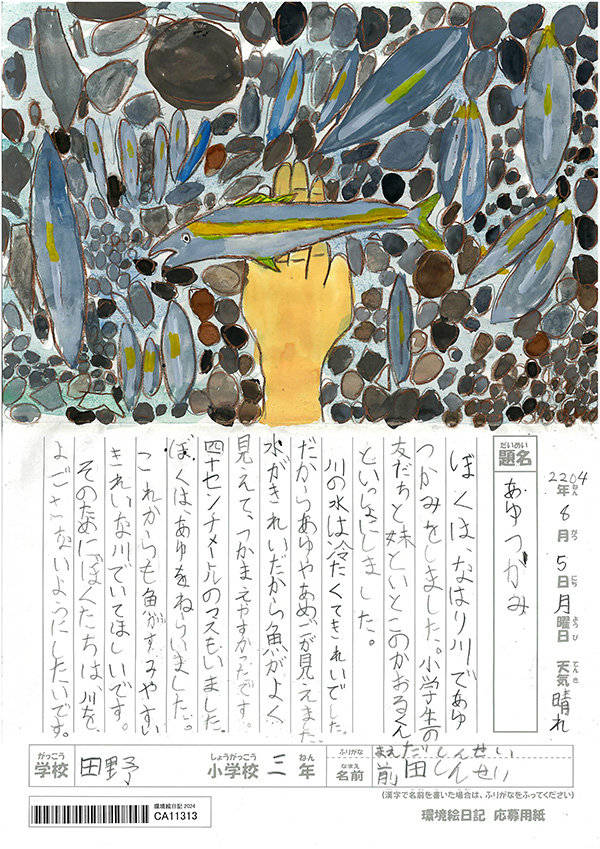 2204年ねん8月がつ5日にち月曜日ようび 天気てんき晴れ
だいめい
題名
あゆつかみ
ぼくは、なはり川であゆ
つかみをしました。小学生の
友だちと妹といとこのかおるくん
といっしょにしました。
川の水は冷たくてきれいでした。
だからあゆやあめごが見えました。
水がきれいだから魚がよく
見えて、つかまえやすかったです。
四十センチメートルのマスもいました。
ぼくは、あゆをねらいました。
これからも魚がすみやすい
きれいな川でいてほしいです。
そのためにぼくたちは、川を
よごさないようにしたいです。
がっこう しょうがっこう ねん
学校 田野 小学校 三年
ふりがな まえだしんせい
なまえ
名前 前田しんせい
(漢字で名前を書いた場合は、ふりがなをふってください)
環境絵日記 2024
CA11313
環境絵日記 応募用紙